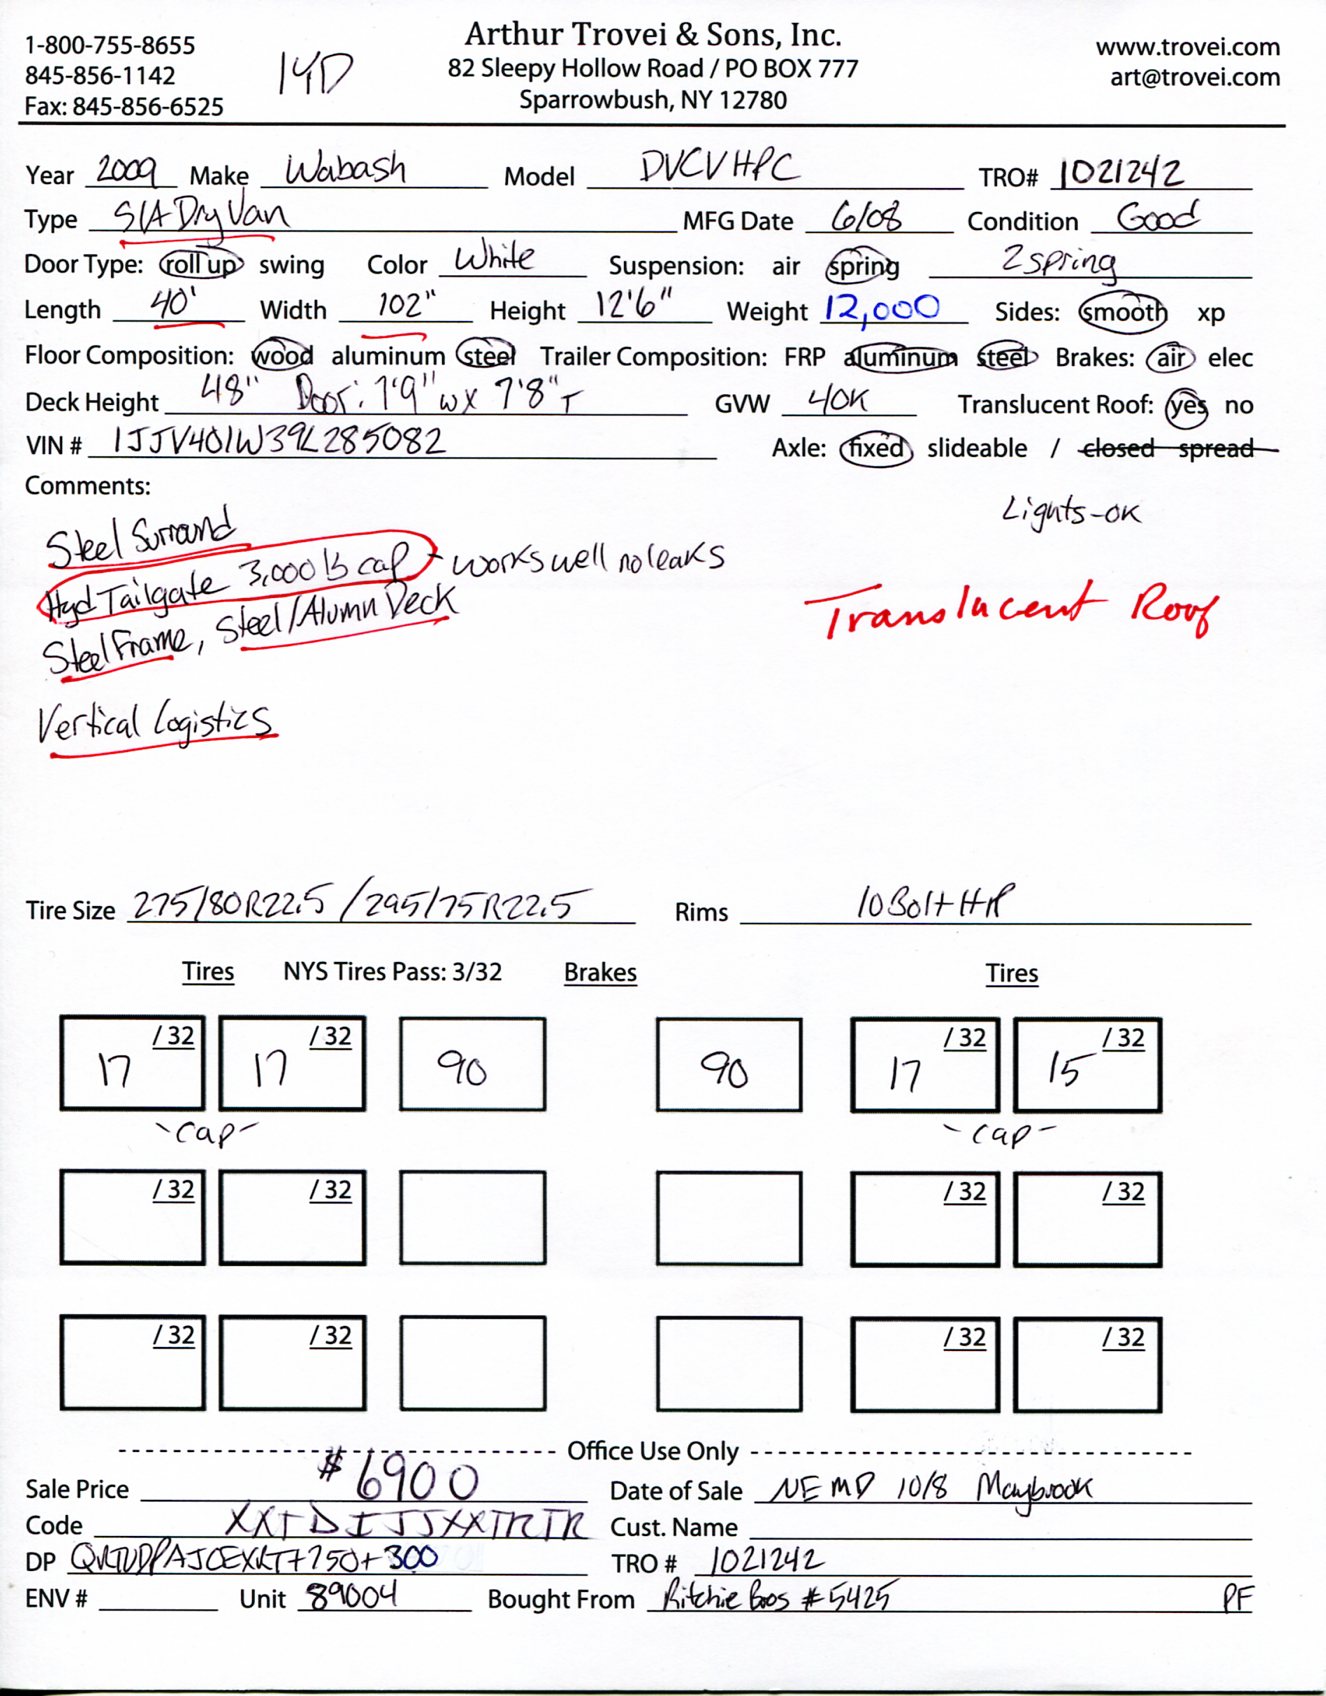 1-800-755-8655
845-856-1142
Fax: 845-856-6525
14D
Arthur Trovei & Sons, Inc.
82 Sleepy Hollow Road / PO BOX 777
Sparrowbush, NY 12780
www.trovei.com
art@trovei.com
Year 2009 Make Wabash Model DVCVHPC TRO# 1021242
Type S/A Dry Van MFG Date 6/08 Condition Good
Door Type: roll up swing Color White Suspension: air spring 2 spring
Length 40' Width 102" Height 12'6" Weight 12,000 Sides: smooth xp
Floor Composition: wood aluminum steel Trailer Composition: FRP aluminum steel Brakes: air elec
Deck Height 48" Door: 7'9" W x 7'8" T GVW 40K Translucent Roof: yes no
VIN # 1JJV401W39L285082 Axle: fixed slideable / closed spread
Comments:
Lights-OK
Steel Surround
Hyd Tailgate 3,000 lb cap - works well no leaks
Steel Frame, Steel/Alumn Deck
Translucent Roof
Vertical Logistics
Tire Size 275/80R22.5 / 295/75R22.5 Rims 10 Bolt HP
Tires NYS Tires Pass: 3/32 Brakes Tires
17 /32 17 /32 90 90 17 /32 15 /32
-cap- -cap-
/32 /32 /32 /32
/32 /32 /32 /32
Office Use Only
Sale Price $6900 Date of Sale NEMD 10/8 Maybrook
Code Cust. Name
DP +750+300 TRO # 1021242
ENV # Unit 89004 Bought From Ritchie Bros #5425 PF